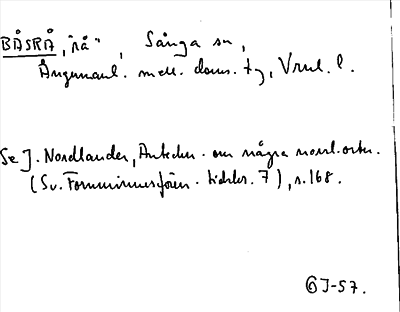 BÅSRÅ, "rå", Sånga sn,
Ångermanl. mell. doms. t g, Vnrl. l.
Se J. Nordlander, Anteckn. om några norrl. orter.
(Sv. Fornminnesfören. tidskr. 7), s. 168.
6J-57.